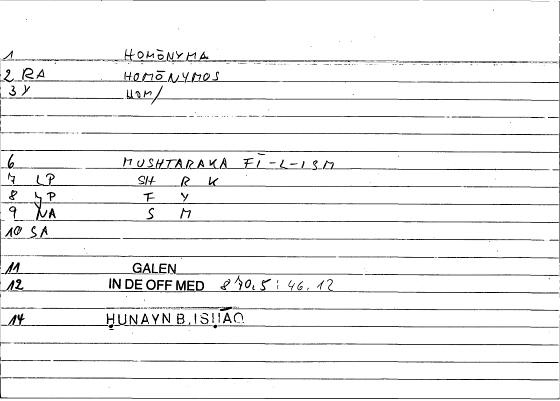 1 HOMŌNYMA
2 RA HOMŌNYMOS
3 Y HOM/
6 MUSHTARAKA FĪ-L-ISM
7 LP SH R K
8 YP F Y
9 NA S M
10 SA
11 GALEN
12 IN DE OFF MED 870.5 : 46.12
14 ḤUNAYN B. ISḤĀQ